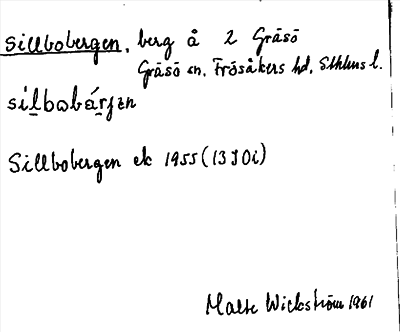 Sillbobergen, berg å 2 Gräsö
Gräsö sn, Frösåkers hd, Sthlms l.
sìlbωbár̯jɛn
Sillbobergen ek 1955 (13J0i)
Malte Wickström 1961